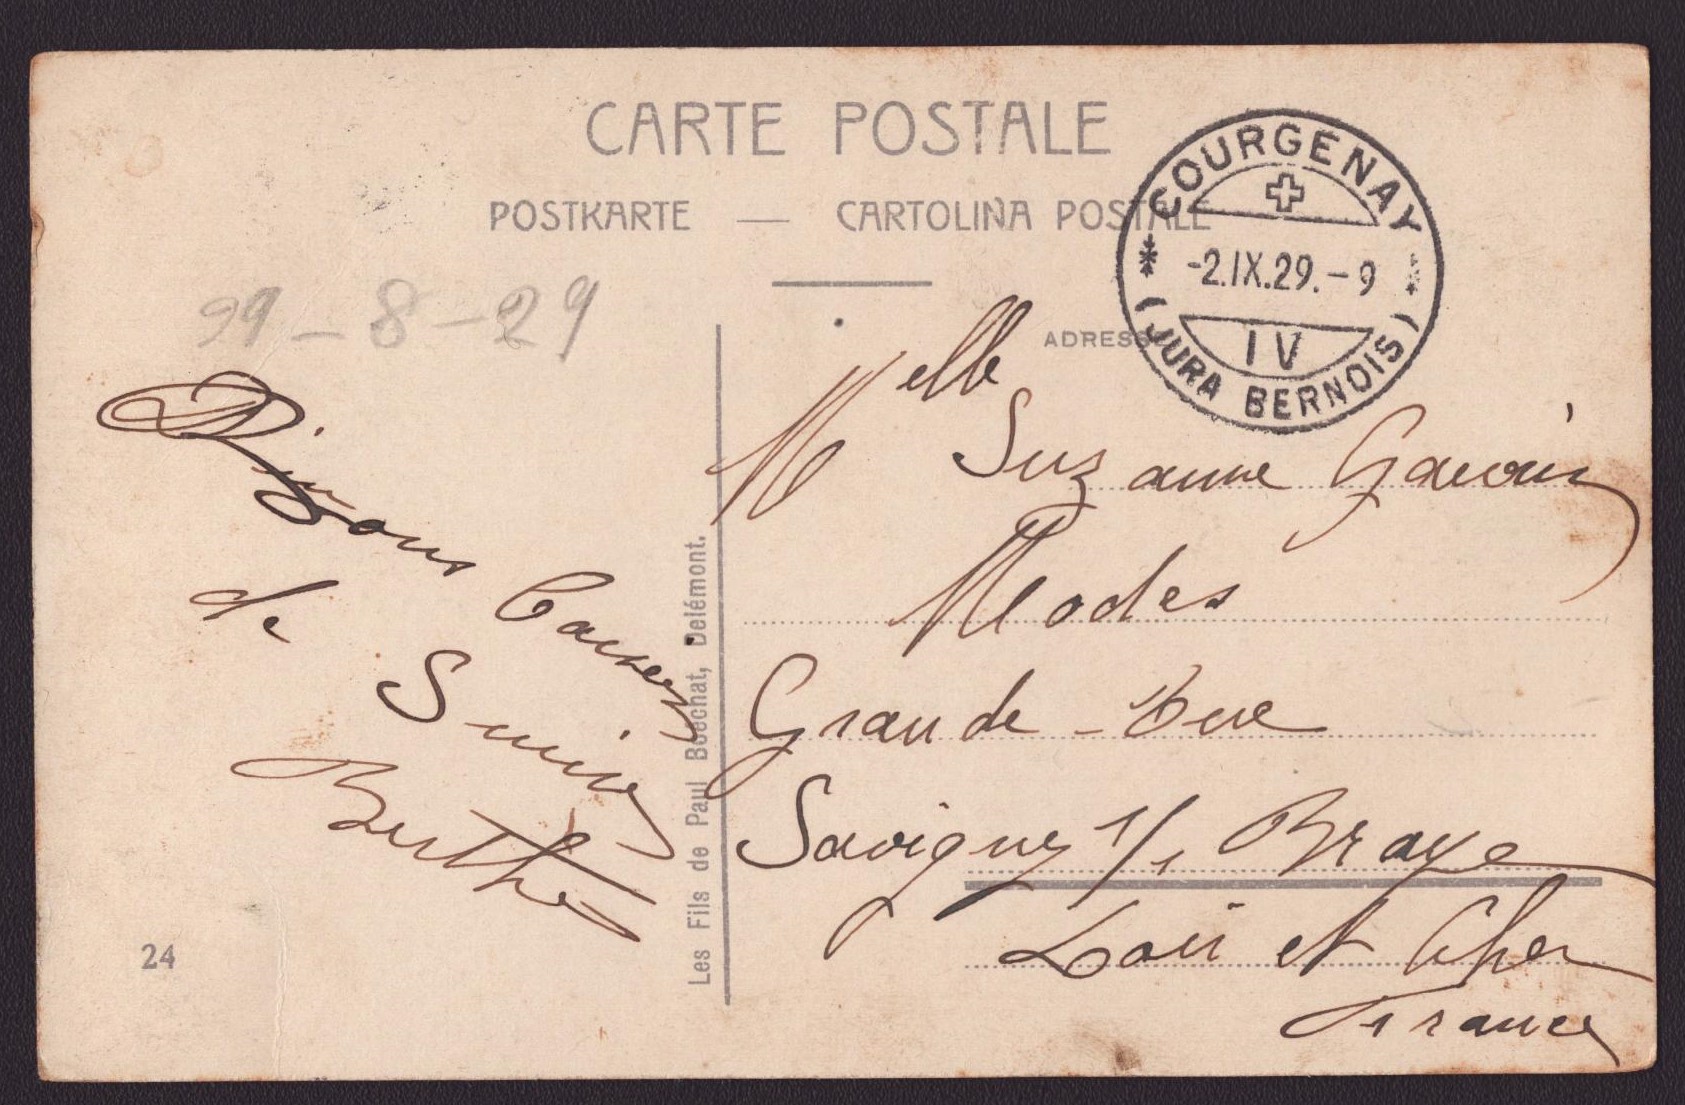 CARTE POSTALE
POSTKARTE — CARTOLINA POSTALE
COURGENAY
-2.IX.29.-9
IV
(JURA BERNOIS)
ADRESSE
29-8-29
Bons Baisers
de Suisse
Berthe
Melle Suzanne Gauvin
Modes
Grande-Rue
Savigny s/s Braye
Loir et Cher
France
Les Fils de Paul Bœchat, Delémont.
24